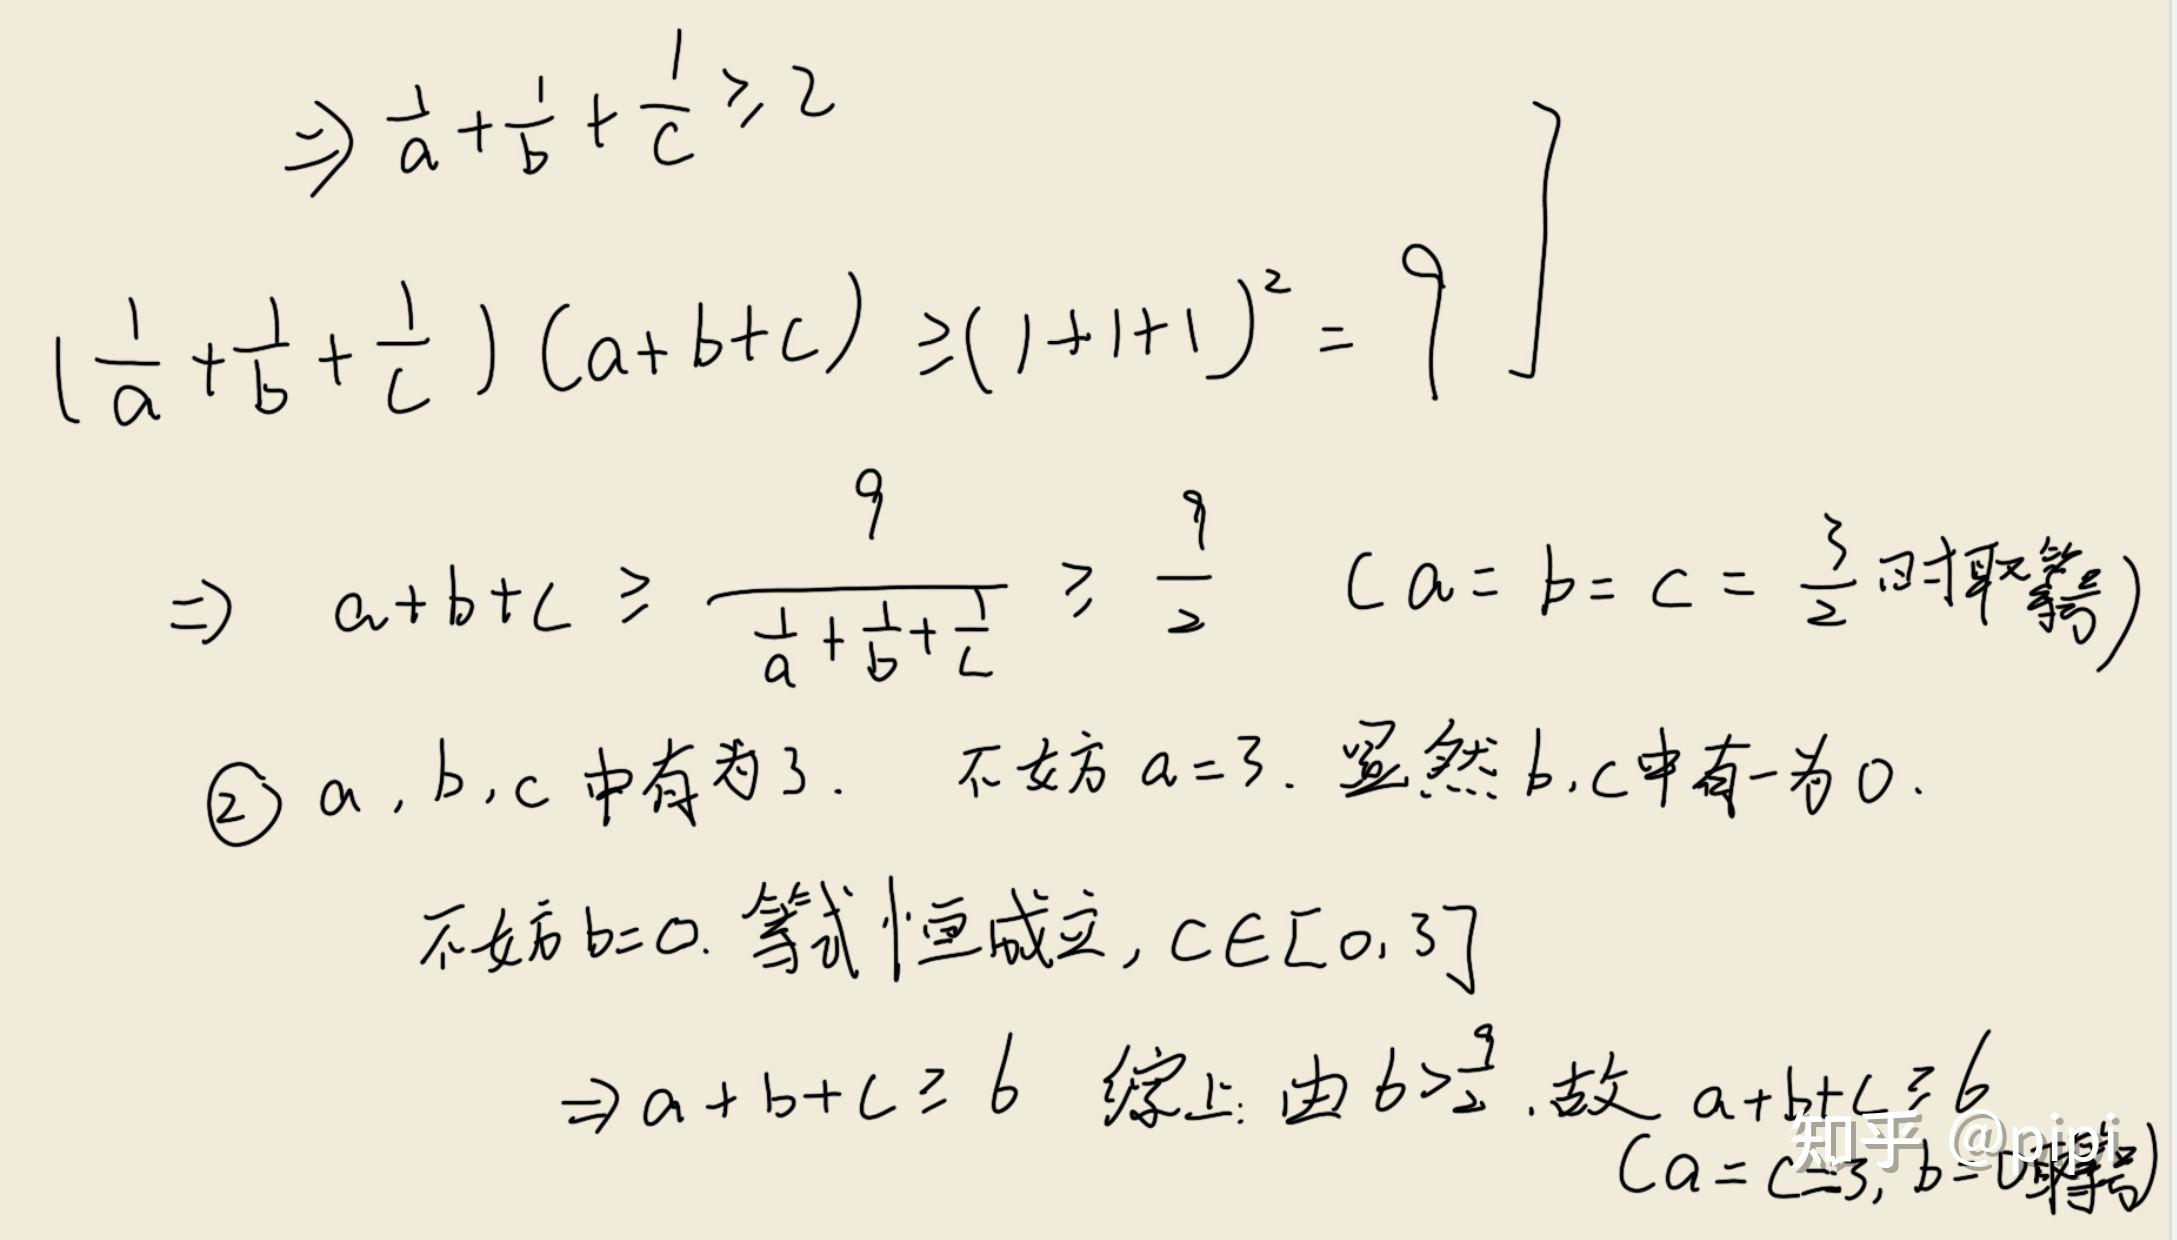 ⇒ 1/a + 1/b + 1/c ≥ 2
(1/a + 1/b + 1/c)(a+b+c) ≥ (1+1+1)² = 9 ]
⇒ a+b+c ≥ 9/(1/a + 1/b + 1/c) ≥ 9/2 (a = b = c = 3/2 时取等号)
② a, b, c 中有为3. 不妨 a=3. 显然 b, c中有一为0.
不妨 b=0. 等式恒成立, c∈[0, 3]
⇒ a+b+c ≥ 6 综上: 由 6>9/2. 故 a+b+c ≥ 6
(a = c = 3, b = 0取等号)
知乎 @pipi